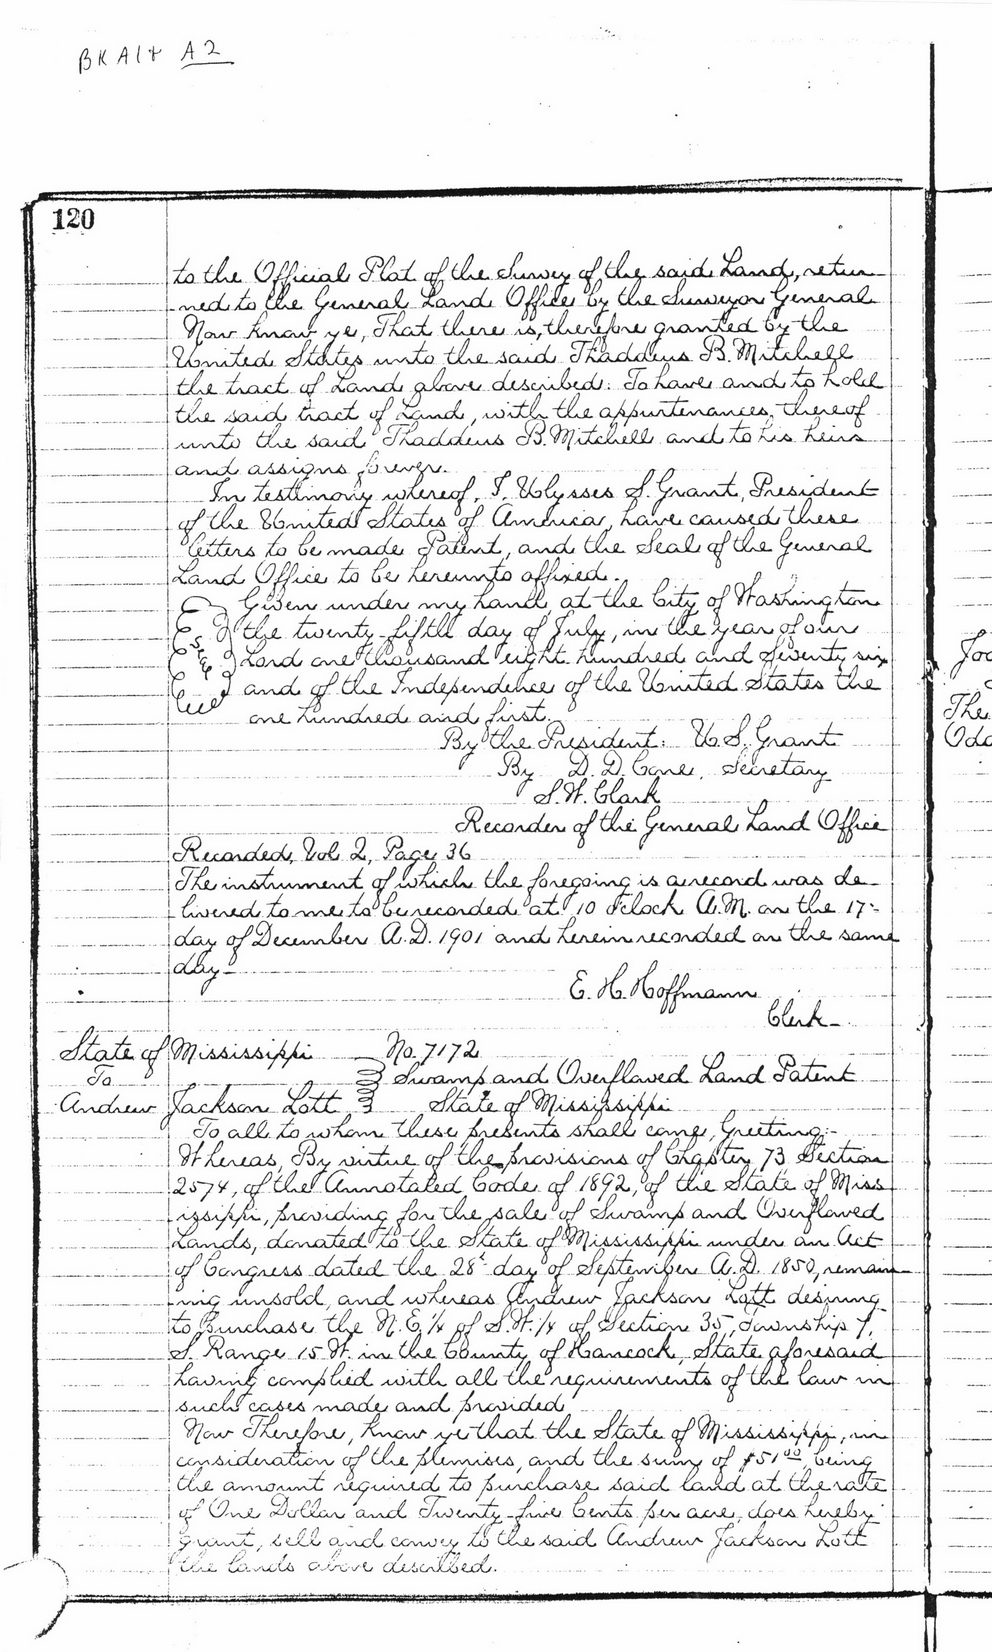 BK A1 & A2
120
to the Official Plat of the Survey of the said Land, retur
ned to the General Land Office by the Surveyor General
Now know ye, That there is, therefore granted by the
United States unto the said Thaddeus B. Mitchell
the tract of Land above described: To have and to hold
the said tract of Land, with the appurtenances, thereof
unto the said Thaddeus B. Mitchell and to his heirs
and assigns forever.
In testimony whereof, I, Ulysses S. Grant, President
of the United States of America, have caused these
letters to be made Patent, and the Seal of the General
Land Office to be hereunto affixed.
Given under my hand, at the City of Washington
the twenty-fifth day of July, in the year of our
Lord one thousand eight hundred and Seventy six
and of the Independence of the United States the
one hundred and first.
By the President: U.S. Grant
By D. D. Cone, Secretary
S. W. Clark
Recorder of the General Land Office
Recorded, Vol 2, Page 36
The instrument of which the foregoing is a record was de-
livered to me to be recorded at 10 o'clock A.M. on the 17-
day of December A.D. 1901 and herein recorded on the same
day-
E. H. Hoffmann
Clerk-
State of Mississippi No. 7172
To Swamp and Overflowed Land Patent
Andrew Jackson Lott State of Mississippi
To all to whom these presents shall come, Greeting:-
Whereas, By virtue of the provisions of Chapter 73 Section
2574, of the Annotated Code of 1892, of the State of Miss
issippi, providing for the sale of Swamp and Overflowed
Lands, donated to the State of Mississippi under an Act
of Congress dated the 28t day of September A.D. 1850, remain
ing unsold, and whereas Andrew Jackson Lott desiring
to purchase the N.E.1/4 of S.W.1/4 of Section 35, Township 7,
S. Range 15 W. in the County of Hancock, State aforesaid
having complied with all the requirements of the law in
such cases made and provided,
Now Therefore, know ye that the State of Mississippi, in
consideration of the premises, and the sum of $51.00, being
the amount required to purchase said land at the rate
of One Dollar and Twenty-five Cents per acre, does hereby
grant, sell and convey to the said Andrew Jackson Lott
the lands above described.
The